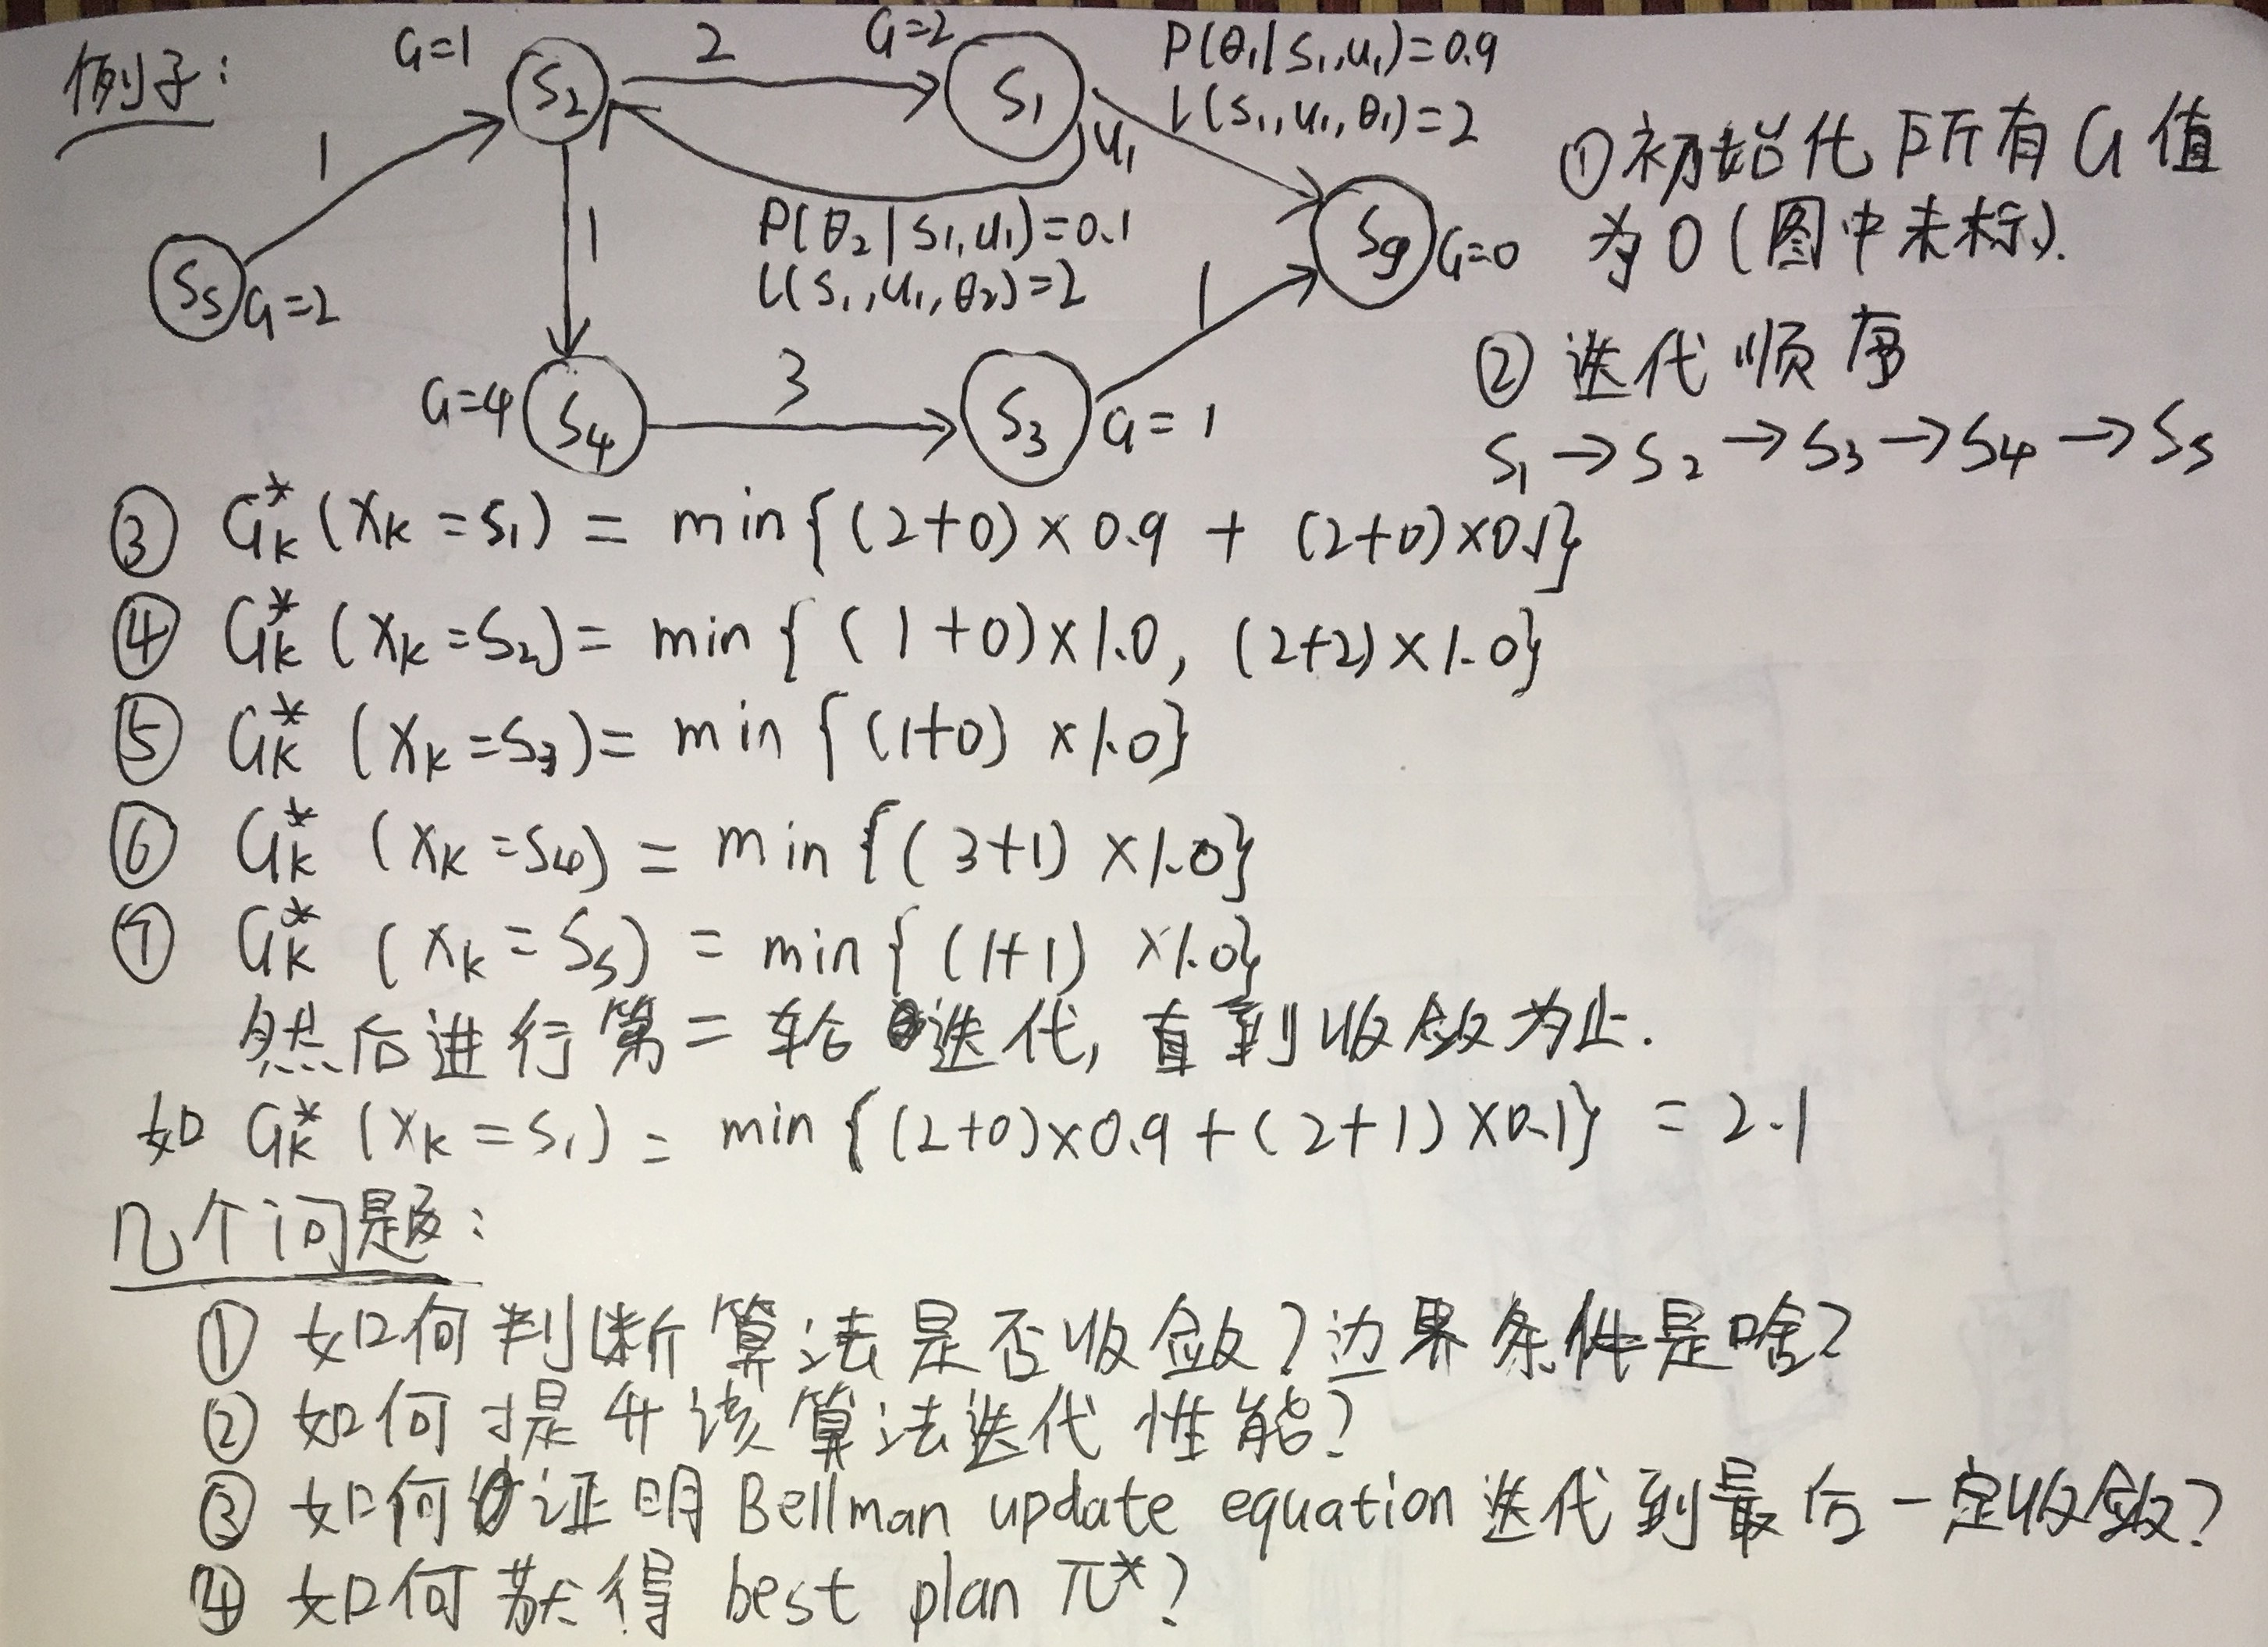 例子:
G=1
S₂
2
G=2
S₁
P(θ₁|S₁,u₁)=0.9
L(S₁,u₁,θ₁)=2
u₁
1
Ss
G=2
1
P(θ₂|S₁,u₁)=0.1
L(S₁,u₁,θ₂)=2
Sg
G=0
1
G=4
S₄
3
S₃
G=1
①初始化所有G值
为0(图中未标).
② 迭代顺序
S₁→S₂→S₃→S₄→Ss
③ G*ₖ(Xₖ=S₁) = min{(2+0)×0.9 + (2+0)×0.1}
④ G*ₖ(Xₖ=S₂) = min{(1+0)×1.0, (2+2)×1.0}
⑤ G*ₖ(Xₖ=S₃) = min{(1+0)×1.0}
⑥ G*ₖ(Xₖ=S₄) = min{(3+1)×1.0}
⑦ G*ₖ(Xₖ=Ss) = min{(1+1)×1.0}
然后进行第二轮迭代,直到收敛为止.
如 G*ₖ(Xₖ=S₁) = min{(2+0)×0.9+(2+1)×0.1} = 2.1
几个问题:
① 如何判断算法是否收敛?边界条件是啥?
② 如何提升该算法迭代性能?
③ 如何证明Bellman update equation迭代到最后一定收敛?
④ 如何获得 best plan π*?